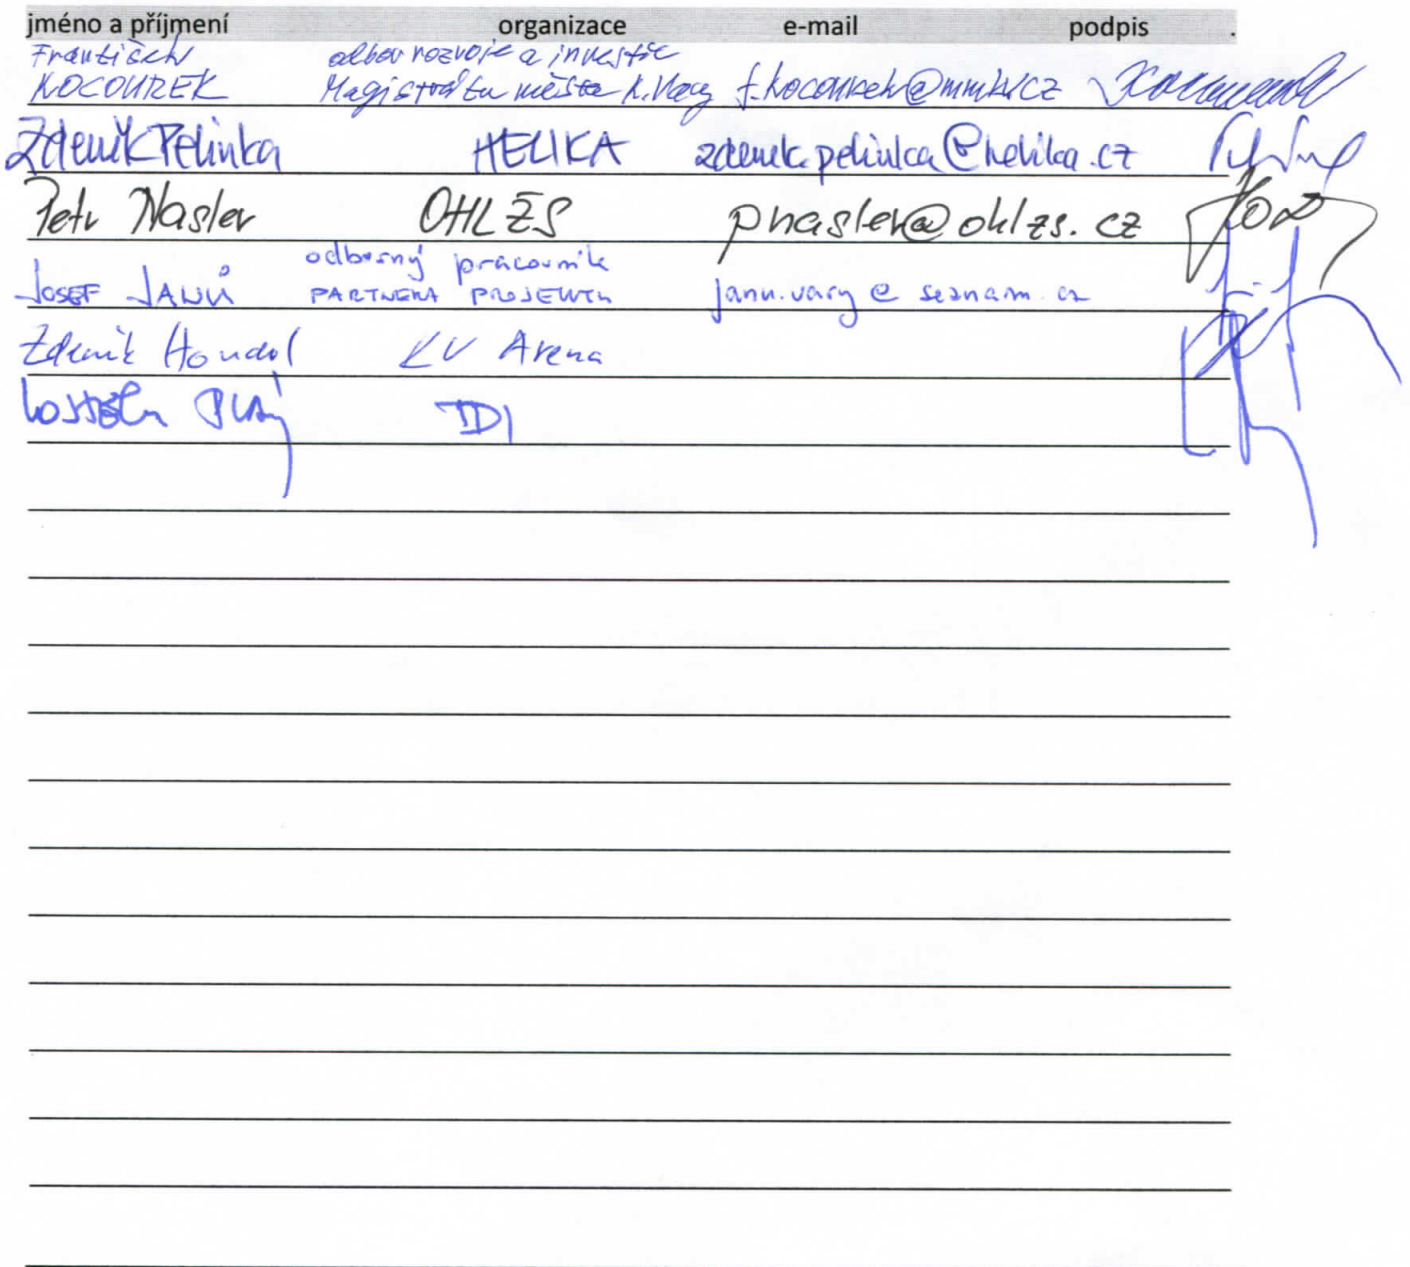 jméno a příjmení organizace e-mail podpis .
František odbor rozvoje a investic
KOCOUREK Magistrátu města K. Vary f.kocourek@mmkv.cz
Zdeněk Pelinka HELIKA zdenek.pelinka@helika.cz
Petr Nasler OHL ŽS pnasler@ohlzs.cz
odborný pracovník
JOSEF JANŮ PARTNERA PROJEKTU janu.vary@seznam.cz
Zdeněk KV Arena
TDI